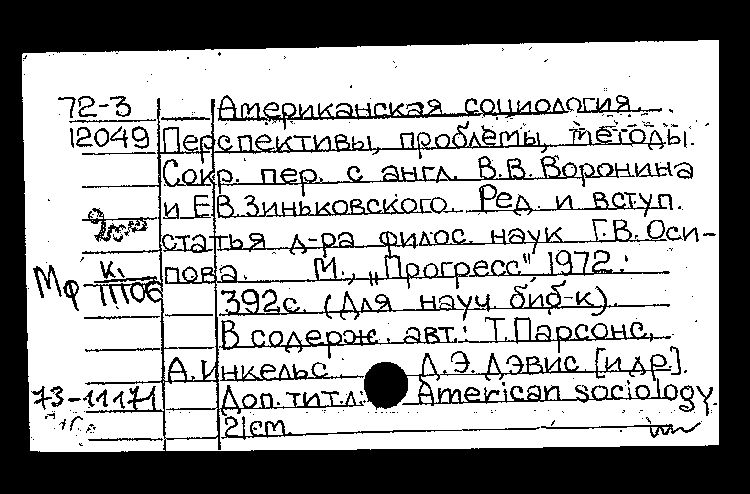 72-3 Американская социология.
12049 Перспективы, проблемы, методы.
Сокр. пер. с англ. В.В.Воронина
и Е.В.Зиньковского. Ред. и вступ.
статья д-ра филос. наук Г.В.Оси-
Мф К. пова. М., „Прогресс" 1972.
11106 392с. (Для науч. биб-к).
В содерж. авт.: Т.Парсонс,
А.Инкельс Д.Э.Дэвис [и др].
73-11171 Доп.тит.л: American sociology.
21cm.